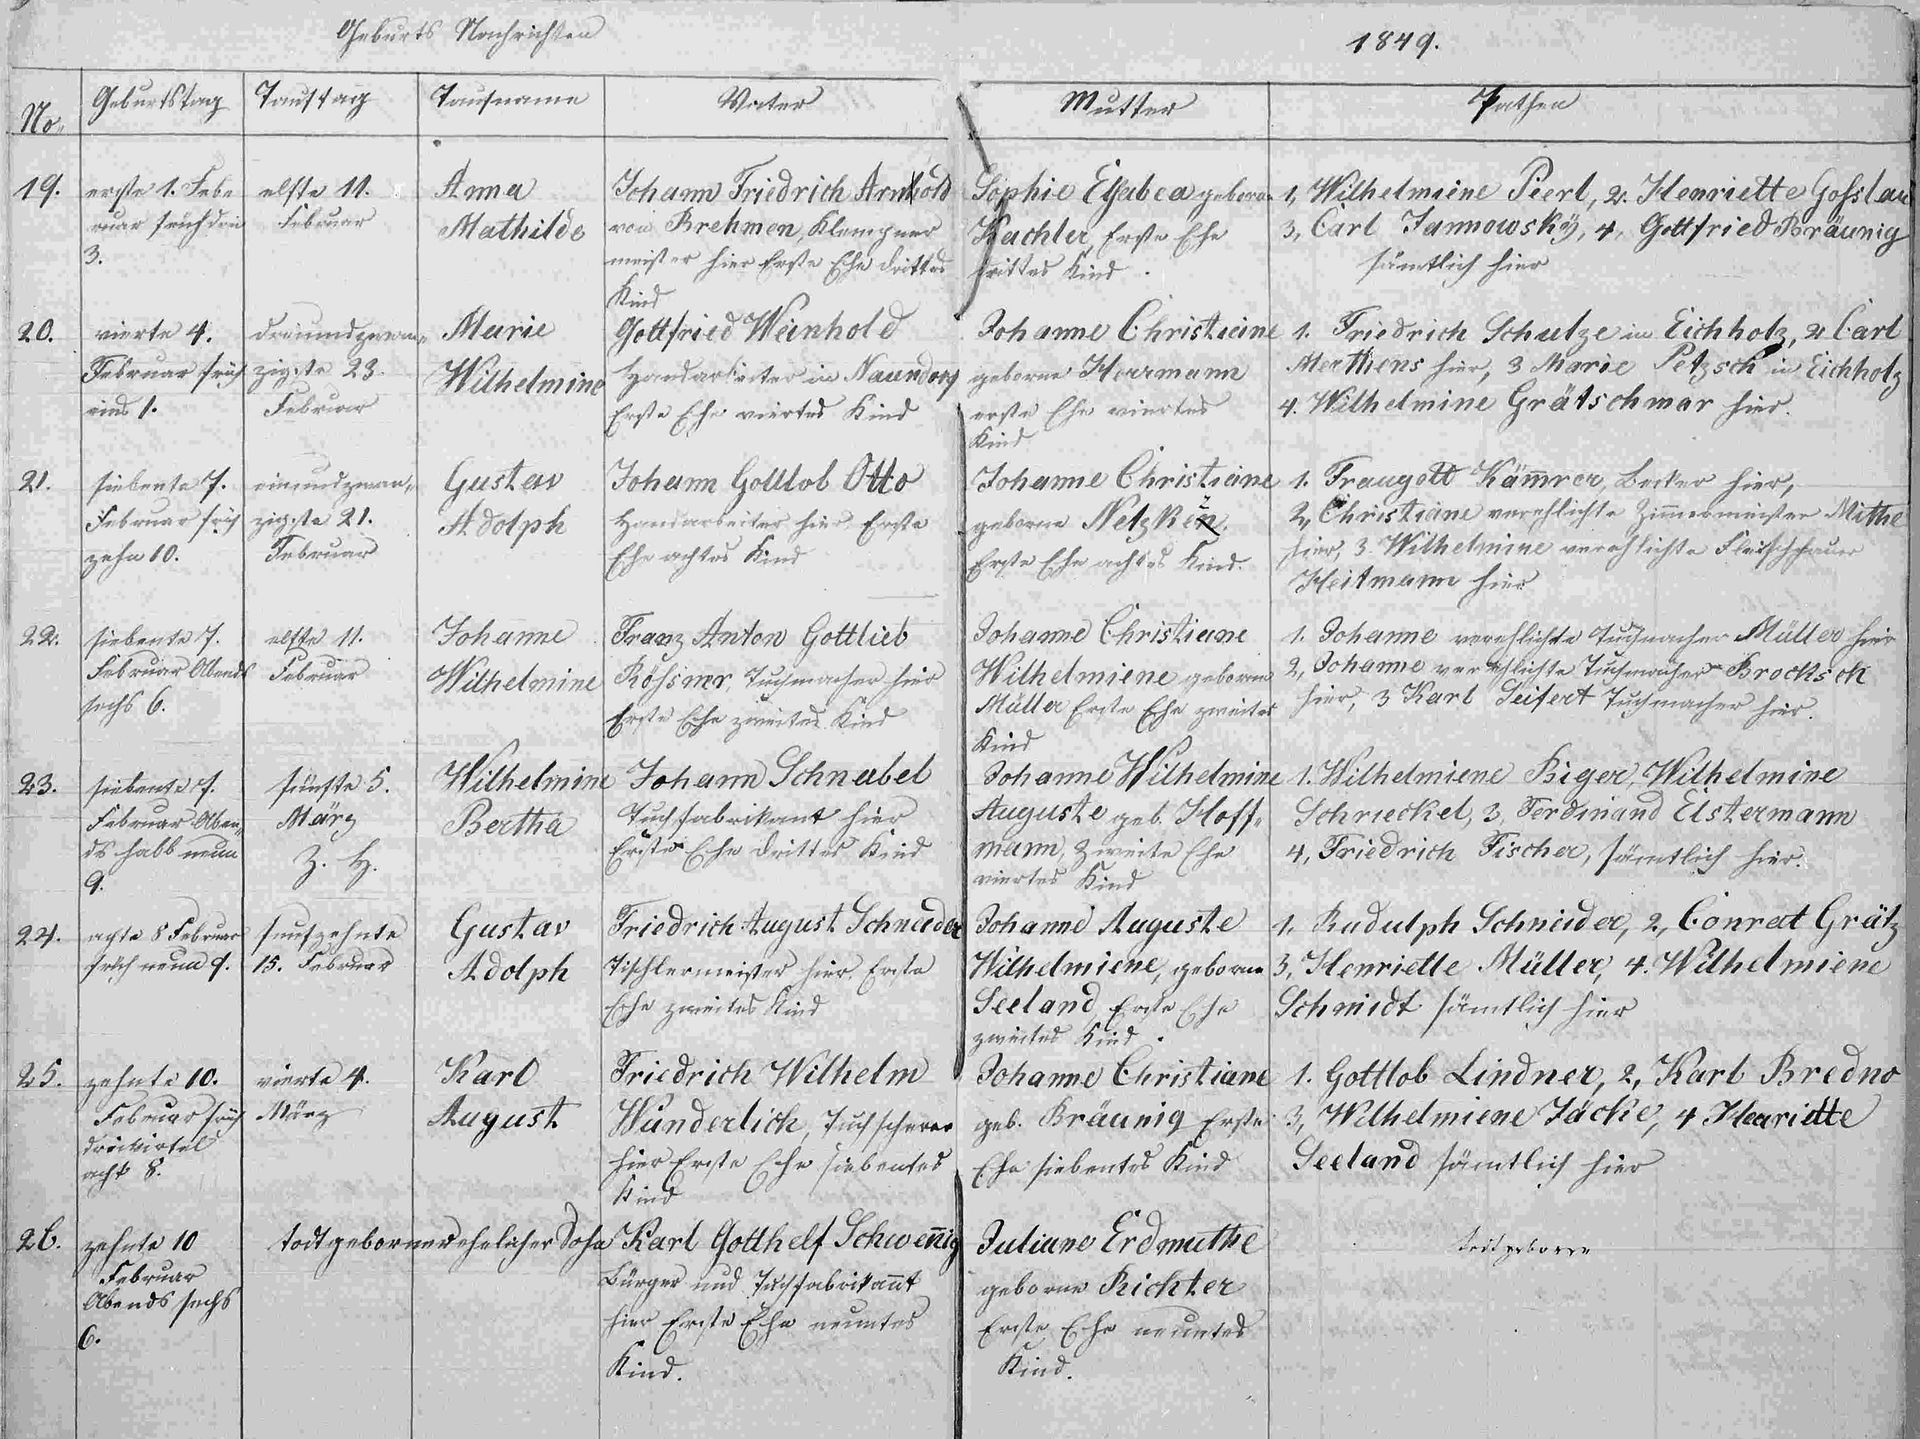 Geburts Nachrichten
1849.
No. Geburtstag Tauftag Taufname Vater Mutter Pathen
19.
erste 1. Febr
ruar früh drei
3.
elfte 11.
Februar
Anna
Mathilde
Johann Friedrich Arnhold
von Brehmen, Klempner
meister hier Erste Ehe drittes
Kind
Sophie geborne
Kachler, Erste Ehe
drittes Kind.
1, Wilhelmiene Peerl, 2. Henriette Goßlau
3, Carl Jannowsky, 4, Gottfried Bräunig
sämtlich hier
20.
vierte 4.
Februar früh
eins 1.
dreiundzwan-
zigste 23.
Februar
Marie
Wilhelmine
Gottfried Weinhold
Handarbeiter in Naundorf
Erste Ehe viertes Kind
Johanne Christiane
geborne Herrmann
erste Ehe viertes
Kind
1. Friedrich Schulze in Eichholz, 2 Carl
Merthens hier, 3 Marie Petzsch in Eichholz
4. Wilhelmine Grätschmar hier.
21.
siebente 7.
Februar früh
zehn 10.
einundzwan-
zigste 21.
Februar
Gustav
Adolph
Johann Gottlob Otto
Handarbeiter hier Erste
Ehe achtes Kind
Johanne Christiane
geborne
Erste Ehe achtes Kind.
1. Traugott Käm̅rer, Becker hier,
2, Christiane verehlichte Zimmermeister Mithe
hier, 3. Wilhelmine verehlichte Fleischhauer
Heitmann hier
22.
siebente 7.
Februar Abends
sechs 6.
elfte 11.
Februar
Johanne
Wilhelmine
Franz Anton Gottlieb
Rößner, Tuchmacher hier
Erste Ehe zweites Kind
Johanne Christiane
Wilhelmiene geborne
Müller Erste Ehe zweites
Kind
1. Johanne verehlichte Tuchmacher Müller hier
2, Johanne verehlichte Tuchmacher Brocksch
hier, 3 Karl Seifert Tuchmacher hier.
23.
siebente 7.
Februar Aben-
ds halb neun
9.
fünfte 5.
März
Z. H.
Wilhelmine
Bertha
Johann Schnabel
Tuchfabrikant hier
Erste Ehe drittes Kind
Johanne Wilhelmine
Auguste geb. Hoff-
mann, Zweite Ehe
viertes Kind
1. Wilhelmiene Biger, Wilhelmine
Schrieckel, 3, Ferdinand Elstermann
4, Friedrich Fischer, sämtlich hier.
24.
acht 8 Februar
früh neun 9.
funfzehnte
15. Februar
Gustav
Adolph
Friedrich August Schneider
Tischlermeister hier, Erste
Ehe zweites Kind
Johanne Auguste
Wilhelmiene, geborne
Seeland, Erste Ehe
zweites Kind.
1, Rudulph Schneider, 2, Conrad Grätz
3, Henriette Müller, 4. Wilhelmiene
Schmidt sämtlich hier
25.
zehnte 10.
Februar früh
dreivirtel
acht 8.
vierte 4.
März
Karl
August
Friedrich Wilhelm
Wunderlich, Tuchscherer
hier Erste Ehe siebentes
Kind
Johanne Christiane
geb. Bräunig Erste
Ehe siebentes Kind
1. Gottlob Lindner, 2, Karl Bredno
3, Wilhelmiene Jäcke, 4 Henriette
Seeland sämtlich hier
26.
zehnte 10
Februar
Abends sechs
6.
todtgeborner ehelicher Sohn
Karl Gotthelf Schwen̅ig
Bürger und Tuchfabrikan̅t
hier Erste Ehe neuntes
Kind.
Juliane Erdmuthe
geborne Richter
Erste Ehe neuntes
Kind.
todtgeboren